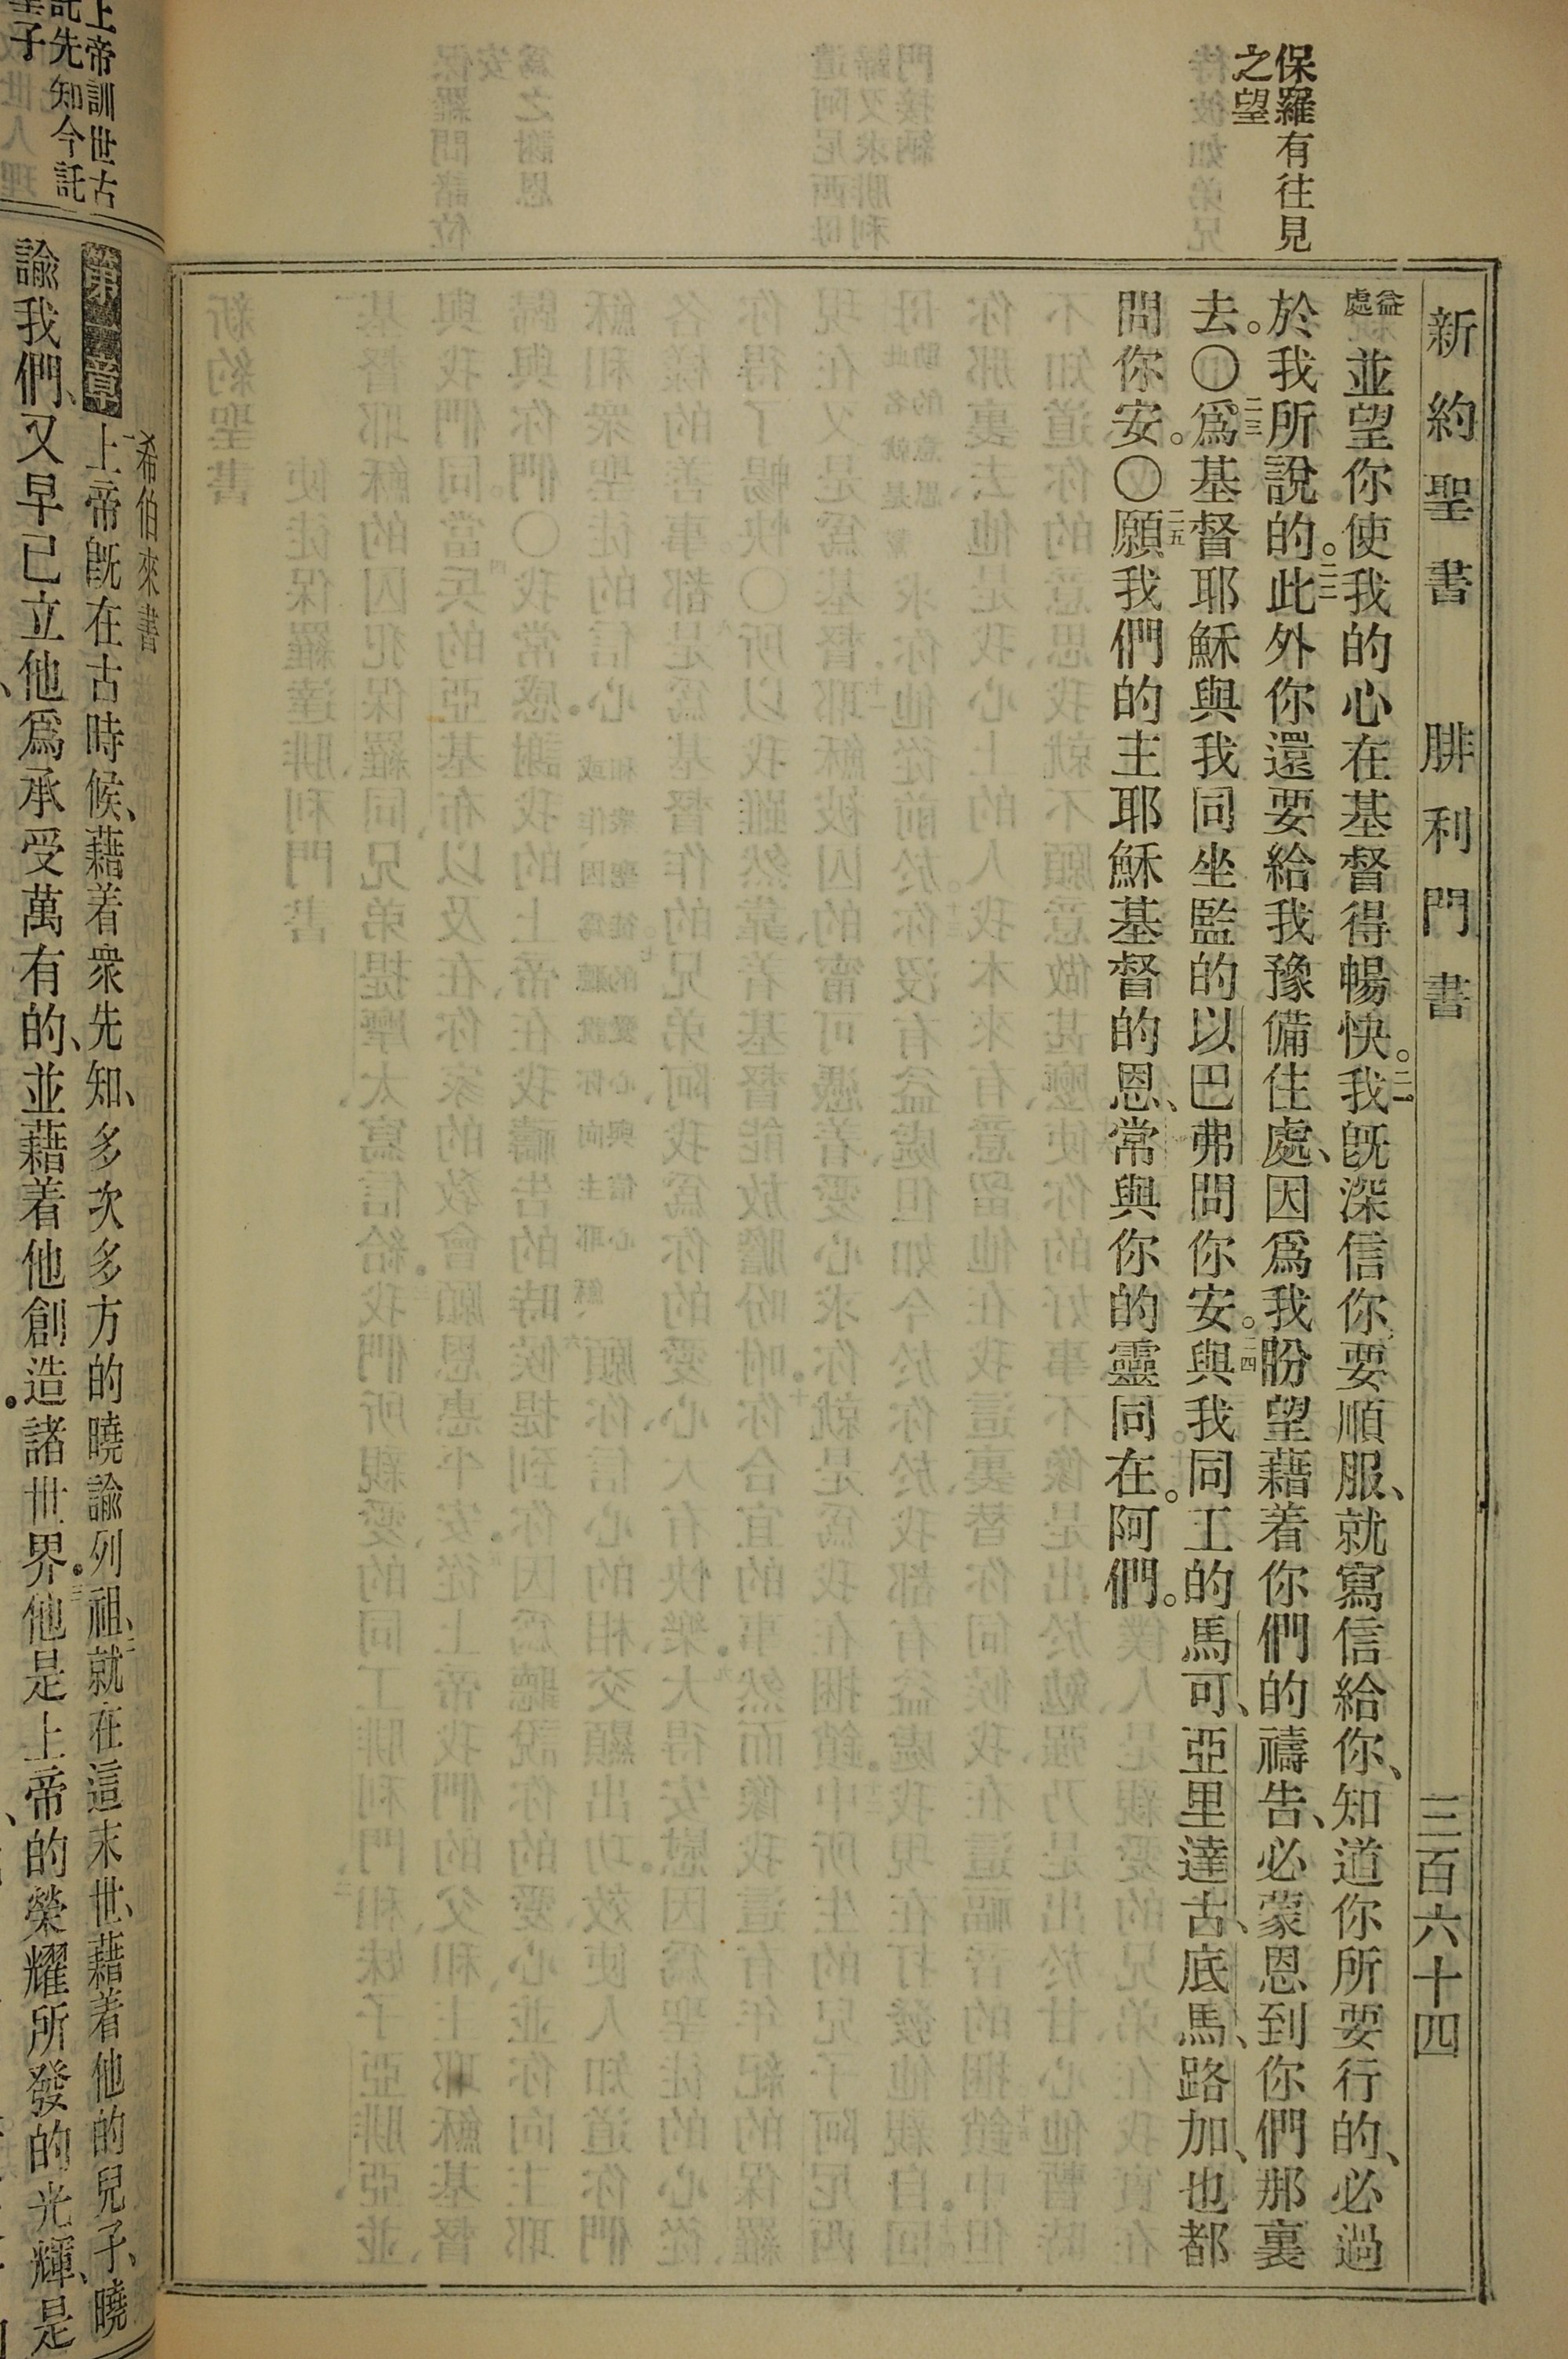 新約聖書 腓利門書 三百六十四
保羅有往見
之望
益處並望你使我的心在基督得暢快。二一我旣深信你要順服、就寫信給你、知道你所要行的、必過
於我所說的。二二此外你還要給我豫備住處、因爲我盼望藉着你們的禱告、必蒙恩到你們那裏
去。〇二三爲基督耶穌與我同坐監的以巴弗問你安。二四與我同工的馬可、亞里達古、底馬、路加、也都
問你安。〇二五願我們的主耶穌基督的恩、常與你的靈同在。阿們。
上帝訓世古
託先知今託
聖子
希伯來書
第一章一上帝旣在古時候、藉着衆先知、多次多方的曉諭列祖、二就在這末世、藉着他的兒子、曉
諭我們、又早已立他爲承受萬有的、並藉着他創造諸世界。三他是上帝的榮耀所發的光輝、是